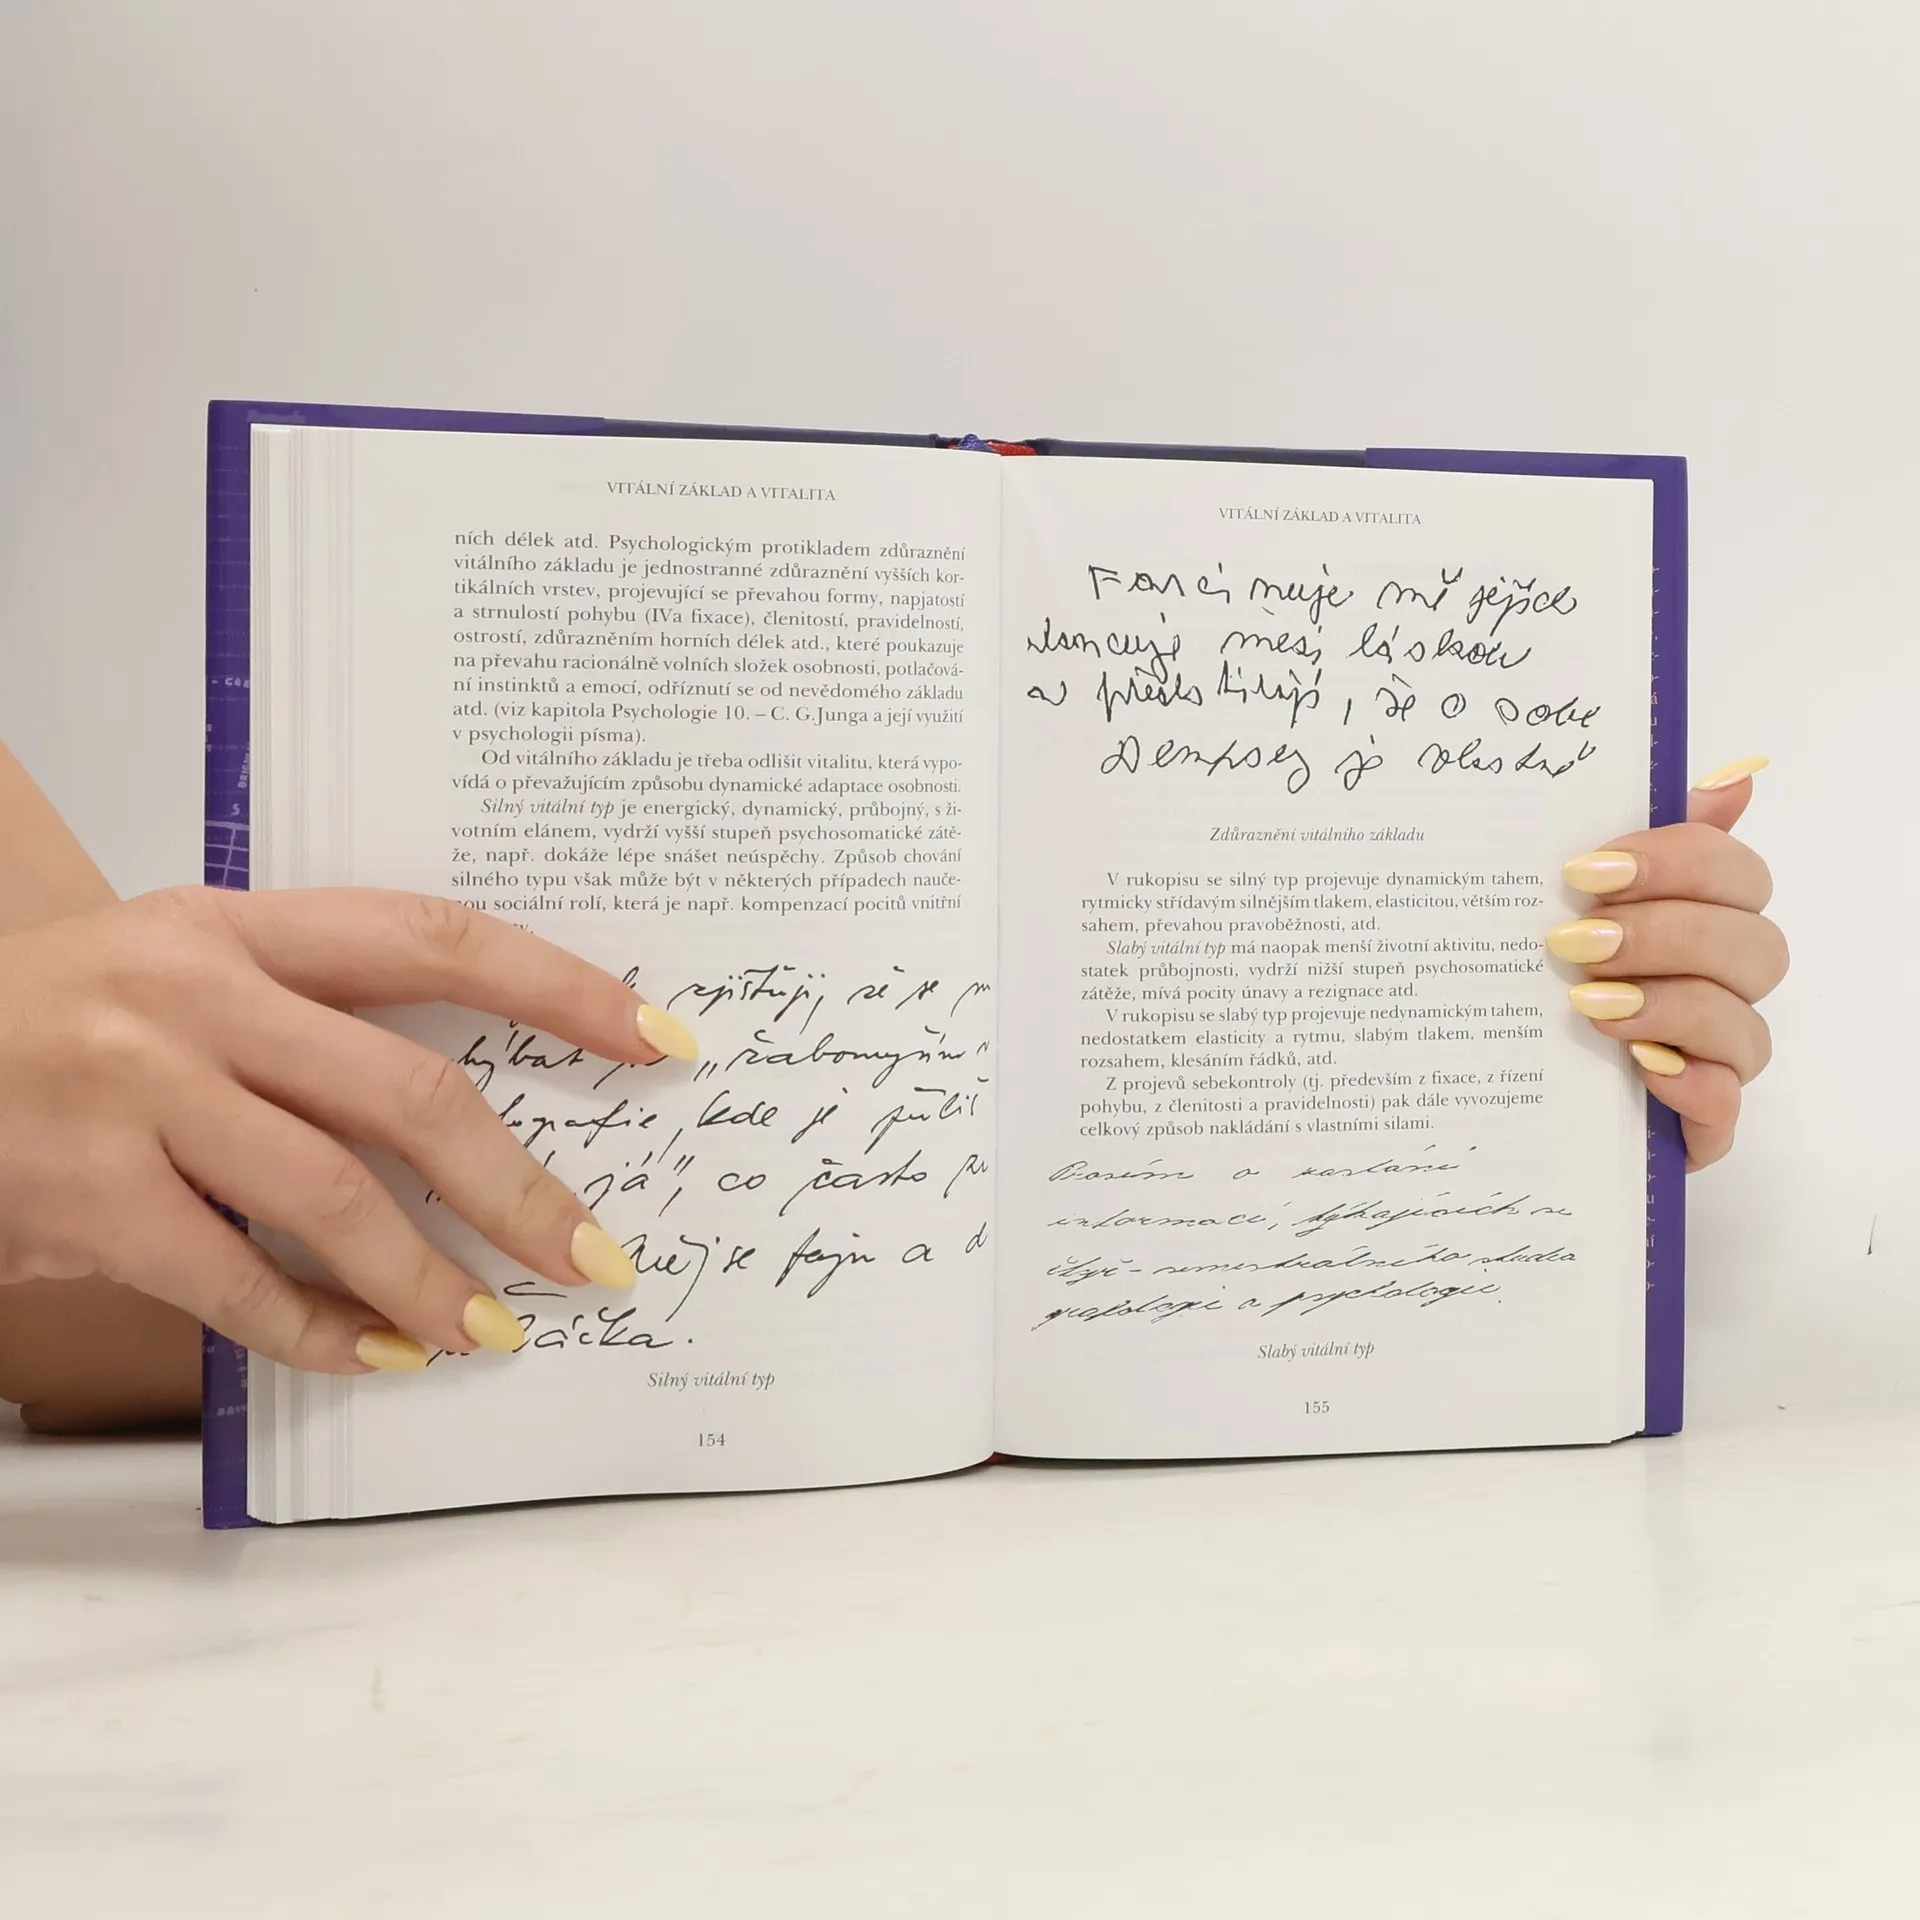 VITÁLNÍ ZÁKLAD A VITALITA
ních délek atd. Psychologickým protikladem zdůraznění
vitálního základu je jednostranné zdůraznění vyšších kor-
tikálních vrstev, projevující se převahou formy, napjatostí
a strnulostí pohybu (IVa fixace), členitostí, pravidelností,
ostrostí, zdůrazněním horních délek atd., které poukazuje
na převahu racionálně volních složek osobnosti, potlačová-
ní instinktů a emocí, odříznutí se od nevědomého základu
atd. (viz kapitola Psychologie 10. – C. G.Junga a její využití
v psychologii písma).
Od vitálního základu je třeba odlišit vitalitu, která vypo-
vídá o převažujícím způsobu dynamické adaptace osobnosti.
Silný vitální typ je energický, dynamický, průbojný, s ži-
votním elánem, vydrží vyšší stupeň psychosomatické zátě-
že, např. dokáže lépe snášet neúspěchy. Způsob chování
silného typu však může být v některých případech nauče-
nou sociální rolí, která je např. kompenzací pocitů vnitřní
zjišťuji, že se
kde je příliš
já", co často
Měj se fajn a d
Káčka.
Silný vitální typ
154
VITÁLNÍ ZÁKLAD A VITALITA
Fascinuje mě jejich
mezi láskou
a , že o sobe
Dempsey je vlastně
Zdůraznění vitálního základu
V rukopisu se silný typ projevuje dynamickým tahem,
rytmicky střídavým silnějším tlakem, elasticitou, větším roz-
sahem, převahou pravoběžnosti, atd.
Slabý vitální typ má naopak menší životní aktivitu, nedo-
statek průbojnosti, vydrží nižší stupeň psychosomatické
zátěže, mívá pocity únavy a rezignace atd.
V rukopisu se slabý typ projevuje nedynamickým tahem,
nedostatkem elasticity a rytmu, slabým tlakem, menším
rozsahem, klesáním řádků, atd.
Z projevů sebekontroly (tj. především z fixace, z řízení
pohybu, z členitosti a pravidelnosti) pak dále vyvozujeme
celkový způsob nakládání s vlastními silami.
Prosím o zaslání
informací, týkajících se
čtyř-semestrálního studia
grafologie a psychologie.
Slabý vitální typ
155